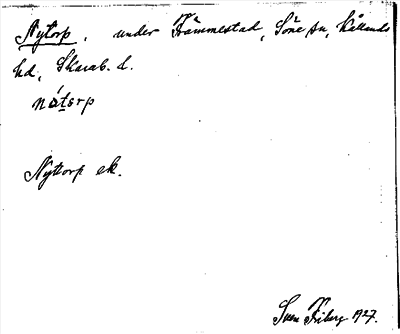 Nytorp, under Främmestad, Söne sn, Kållands
hd, Skarab. l.
nátorp
Nyttorp ek.
Sven Friberg 1927.